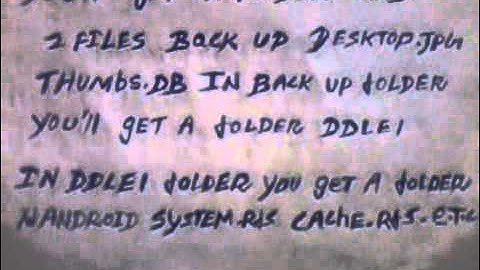 2 FILES BACK UP DESKTOP.JPG
THUMBS.DB IN BACK UP fOLDER
YOU'LL GET A fOLDER DDLE1
IN DDLE1 fOLDER YOU GET A fOLDER
NANDROID SYSTEM.RfS CACHE.RfS.E.T.C